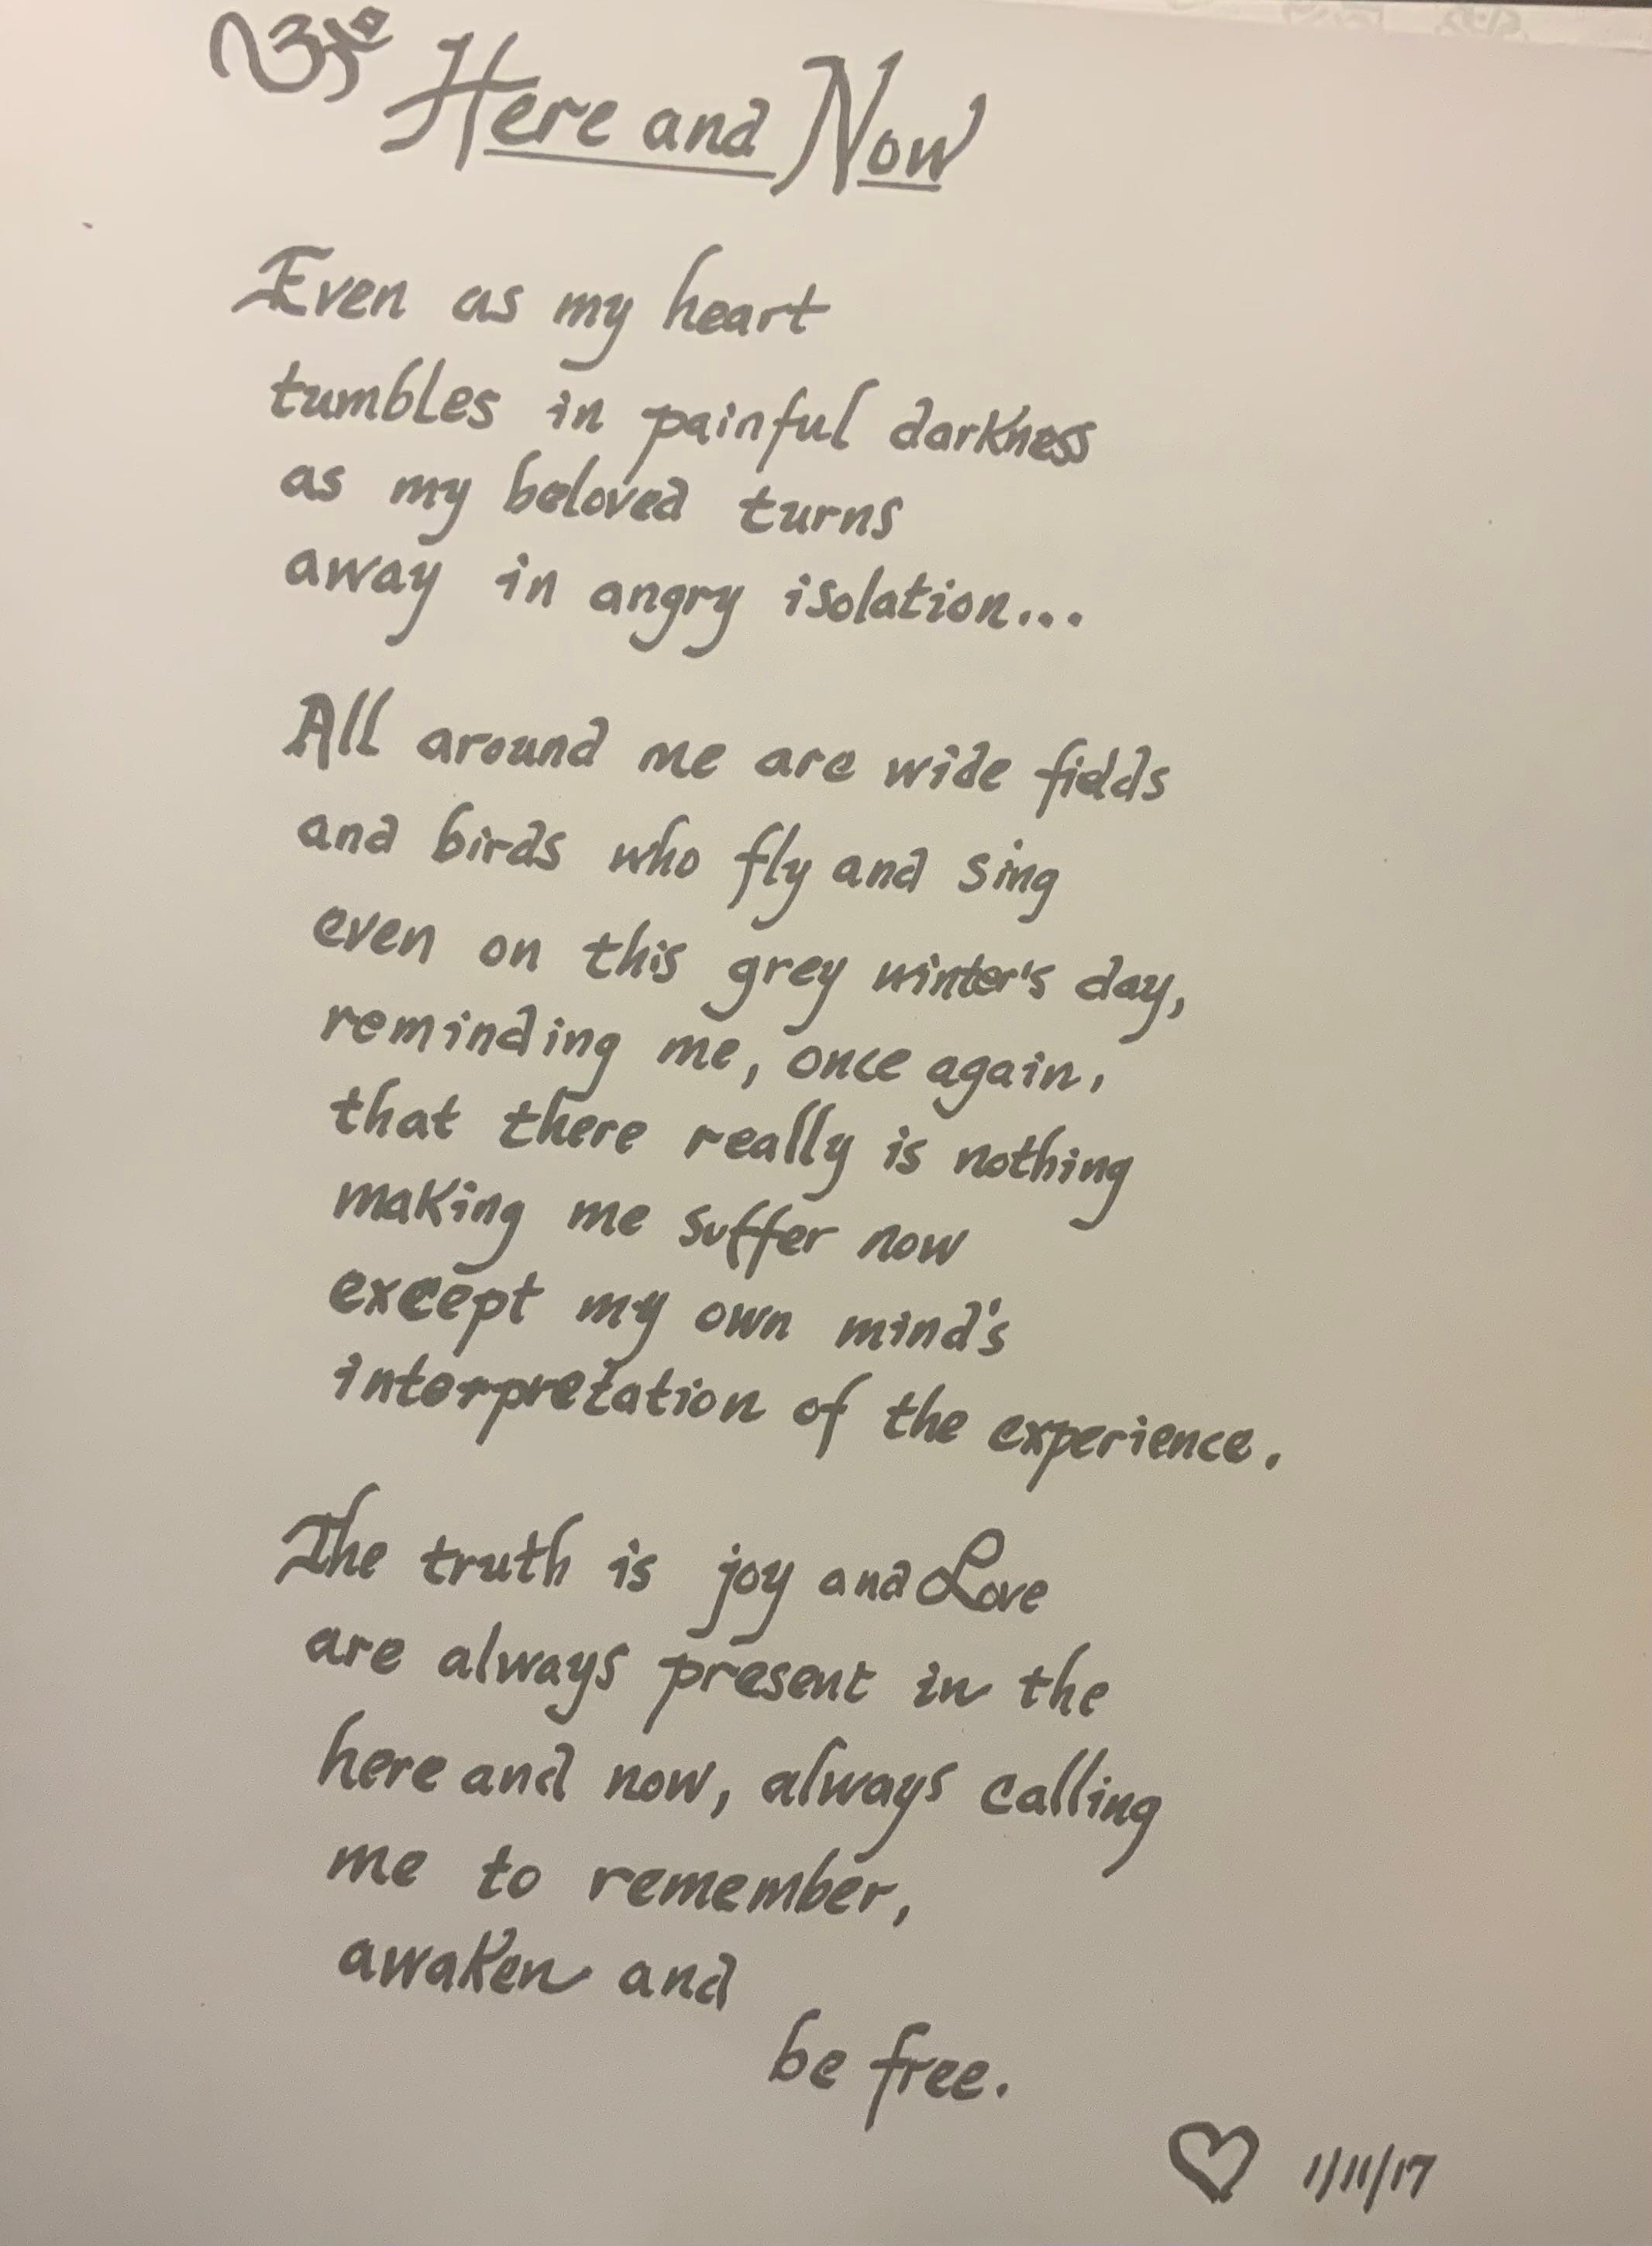 ॐ Here and Now
Even as my heart
tumbles in painful darkness
as my beloved turns
away in angry isolation...
All around me are wide fields
and birds who fly and sing
even on this grey winter's day,
reminding me, once again,
that there really is nothing
making me suffer now
except my own mind's
interpretation of the experience.
The truth is joy and Love
are always present in the
here and now, always calling
me to remember,
awaken and
be free.
♡ 1/11/17